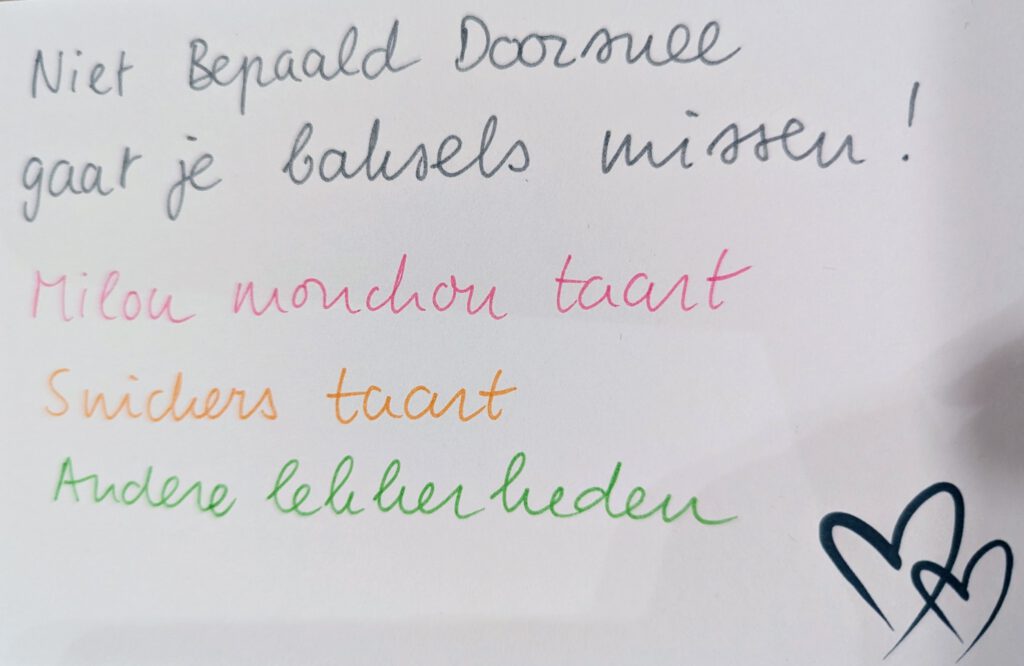 Niet Bepaald Doorsnee
gaat je baksels missen!
Milou monchou taart
Snickers taart
Andere lekkerheden